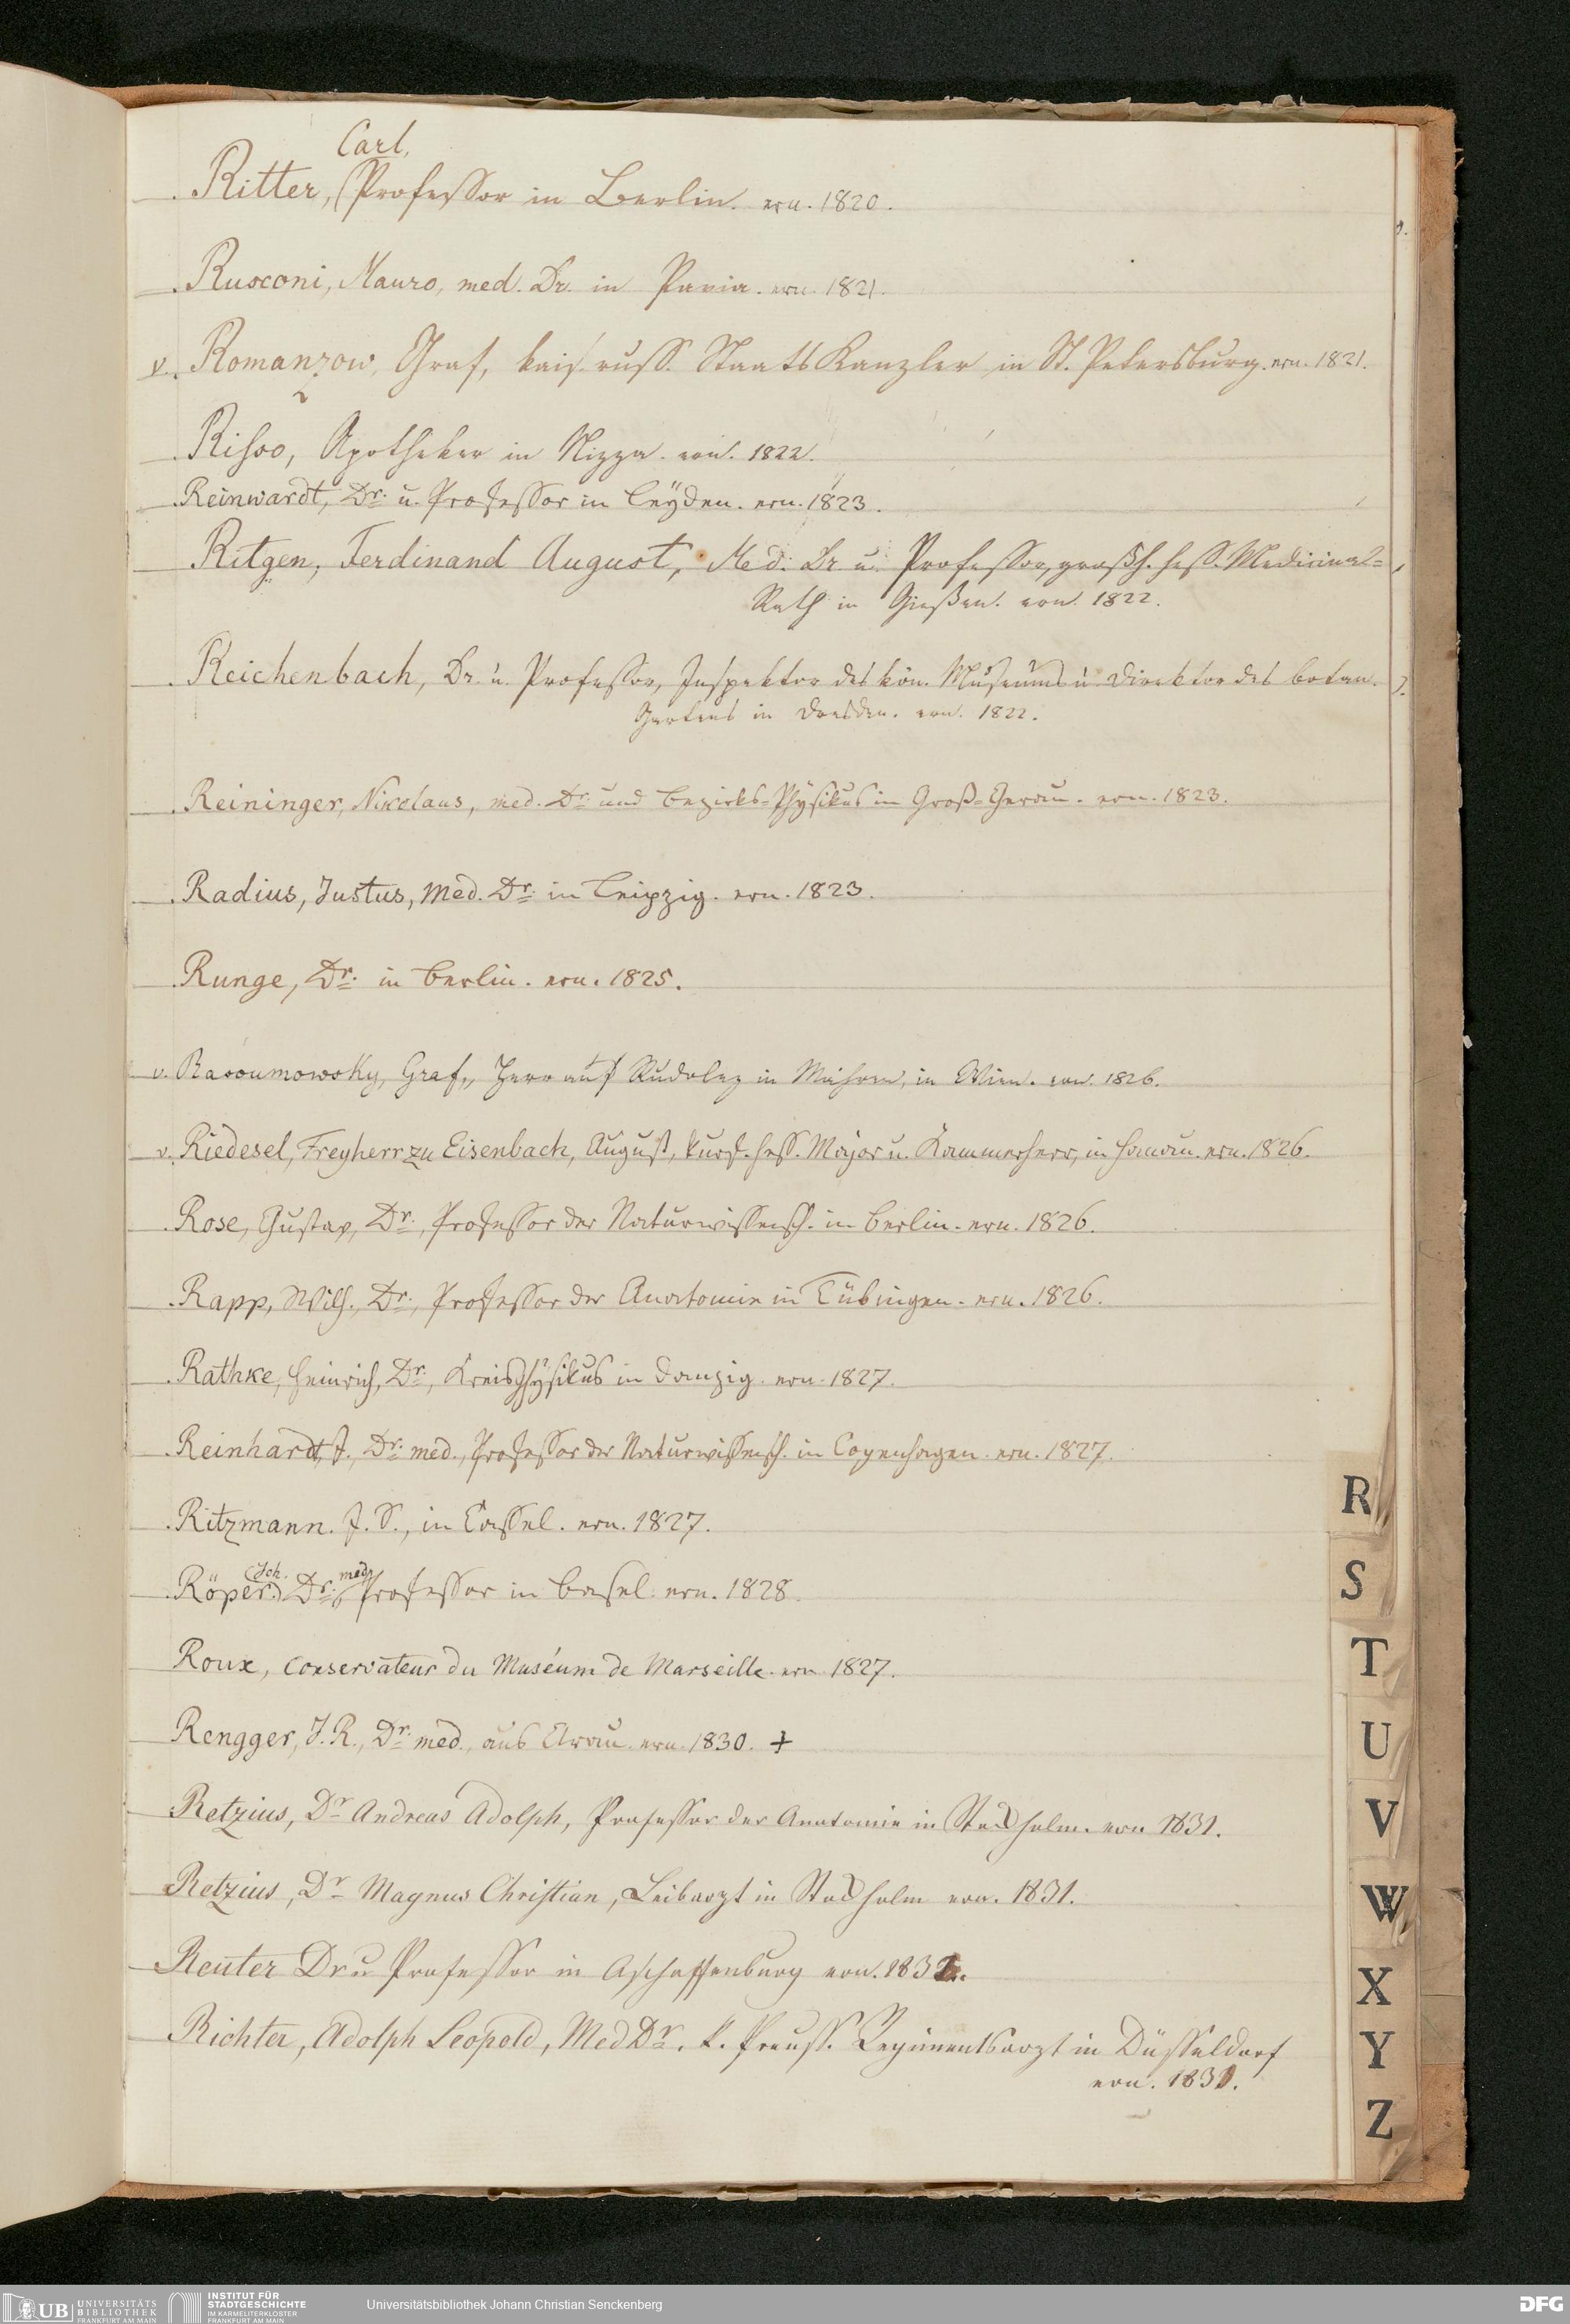 Carl,
Ritter, (Professor in Berlin. ern. 1820.
Rusconi, Mauro, med. Dr. in Pavia. ern. 1821.
v. Romanzow, Graf, kais. russ. Staats Kanzler in St. Petersburg. ern. 1821.
Risso, Apotheker in Nizza. ern. 1822.
Reinwardt, Dr. u. Professor in Leyden. ern. 1823.
Ritgen, Ferdinand August, Med. Dr. u. Professor, großh. hess. Medicinal-
Rath in Gießen. ern. 1822.
Reichenbach, Dr. u. Professor, Inspektor des kön. Museums u. Direktor des botan.
Gartens in Dresden. ern. 1822.
Reininger, Nikolaus, med. Dr. und Bezirks-Physikus in Groß-Gerau. ern. 1823.
Radius, Justus, Med. Dr. in Leipzig. ern. 1823.
Runge, Dr. in Berlin. ern. 1825.
v. Rasoumowsky, Graf, Herr auf Rudolez in Mähren, in Wien. ern. 1826.
v. Riedesel, Freyherr zu Eisenbach, August, kurf. hess. Major u. Kammerherr, in Hanau. ern. 1826.
Rose, Gustav, Dr., Professor der Naturwissensch. in Berlin. ern. 1826.
Rapp, Wilh., Dr., Professor der Anatomie in Tübingen. ern. 1826.
Rathke, Heinrich, Dr., Kreisphysikus in Danzig. ern. 1827.
Reinhardt, J., Dr. med., Professor der Naturwissensch. in Copenhagen. ern. 1827.
Ritzmann. J. S., in Cassel. ern. 1827.
(Joh. med.
Röper.) Dr. Professor in Basel. ern. 1828.
Roux, Conservateur du Muséum de Marseille. ern 1827.
Rengger, J. R., Dr. med., aus Arau. ern. 1830. +
Retzius, Dr Andreas Adolph, Professor der Anatomie in Stockholm. ern 1831.
Retzius, Dr Magnus Christian, Leibarzt in Stockholm ern. 1831.
Reuter Dr u Professor in Aschaffenburg ern. 1831.
Richter, Adolph Leopold, Med Dr. k. Preuss. Regimentsarzt in Düsseldorf
ern. 1831.
R
S
T
U
V
W
X
Y
Z
UB UNIVERSITÄTS
BIBLIOTHEK
FRANKFURT AM MAIN
INSTITUT FÜR
STADTGESCHICHTE
IM KARMELITERKLOSTER
FRANKFURT AM MAIN
Universitätsbibliothek Johann Christian Senckenberg
DFG